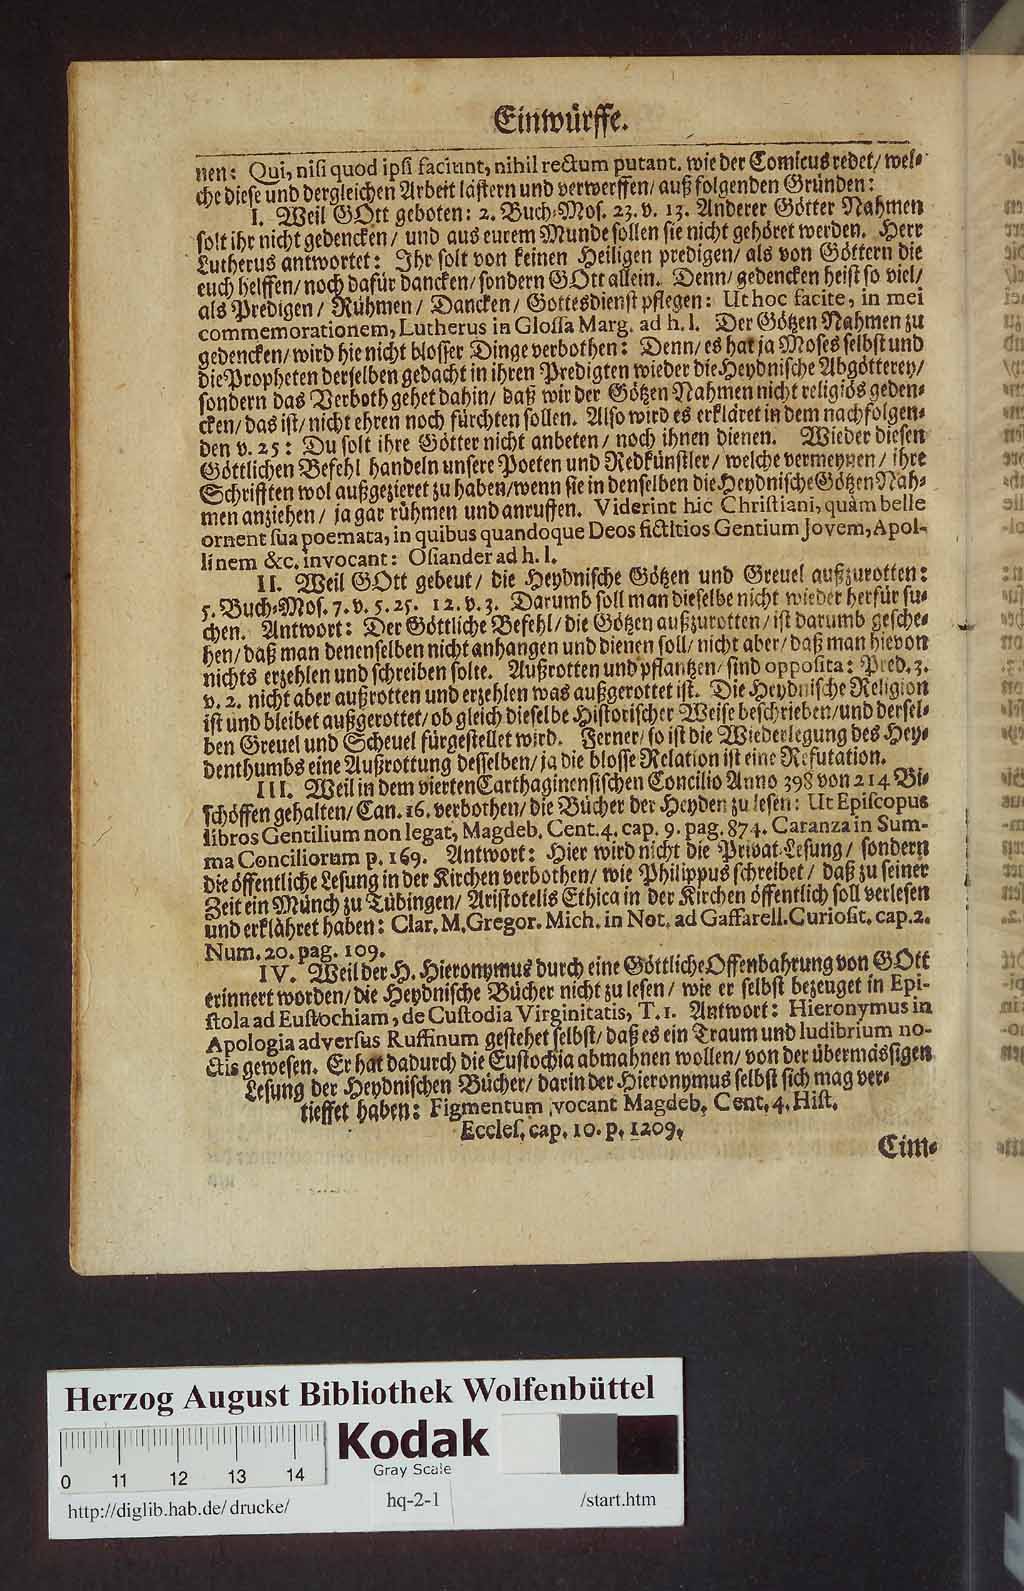 Einwürffe.
nen: Qui, nisi quod ipsi faciunt, nihil rectum putant. wie der Comicus redet/ wel-
che diese und dergleichen Arbeit lästern und verwerffen/ auß folgenden Gründen:
I. Weil GOtt geboten: 2. Buch-Mos. 23. v. 13. Anderer Götter Nahmen
solt ihr nicht gedencken/ und aus eurem Munde sollen sie nicht gehöret werden. Herr
Lutherus antwortet: Ihr solt von keinen Heiligen predigen/ als von Göttern die
euch helffen/ noch dafür dancken/ sondern GOtt allein. Denn/ gedencken heist so viel/
als Predigen/ Rühmen/ Dancken/ Gottesdienst pflegen: Ut hoc facite, in mei
commemorationem, Lutherus in Glossa Marg. ad h. l. Der Götzen Nahmen zu
gedencken/ wird hie nicht blosser Dinge verbothen: Denn/ es hat ja Moses selbst und
die Propheten derselben gedacht in ihren Predigten wieder die Heydnische Abgötterey/
sondern das Verboth gehet dahin/ daß wir der Götzen Nahmen nicht religiös geden-
cken/ das ist/ nicht ehren noch fürchten sollen. Also wird es erkläret in dem nachfolgen-
den v. 25: Du solt ihre Götter nicht anbeten/ noch ihnen dienen. Wieder diesen
Göttlichen Befehl handeln unsere Poeten und Redkünstler/ welche vermeynen/ ihre
Schrifften wol außgezieret zu haben/ wenn sie in denselben die Heydnische Götzen Nah-
men anziehen/ ja gar rühmen und anruffen. Viderint hic Christiani, quàm belle
ornent sua poemata, in quibus quandoque Deos fictitios Gentium Jovem, Apol-
linem &c. invocant: Osiander ad h. l.
II. Weil GOtt gebeut/ die Heydnische Götzen und Greuel außzurotten:
5. Buch-Mos. 7. v. 5. 25. 12. v. 3. Darumb soll man dieselbe nicht wieder herfür su-
chen. Antwort: Der Göttliche Befehl/ die Götzen außzurotten/ ist darumb gesche-
hen/ daß man denenselben nicht anhangen und dienen soll/ nicht aber/ daß man hievon
nichts erzehlen und schreiben solte. Außrotten und pflantzen/ sind opposita: Pred. 3.
v. 2. nicht aber außrotten und erzehlen was außgerottet ist. Die Heydnische Religion
ist und bleibet außgerottet/ ob gleich dieselbe Historischer Weise beschrieben/ und dersel-
ben Greuel und Scheuel fürgestellet wird. Ferner/ so ist die Wiederlegung des Hey-
denthumbs eine Außrottung desselben/ ja die blosse Relation ist eine Refutation.
III. Weil in dem vierten Carthaginensischen Concilio Anno 398 von 214 Bi-
schöffen gehalten/ Can. 16. verbothen/ die Bücher der Heyden zu lesen: Ut Episcopus
libros Gentilium non legat, Magdeb. Cent. 4. cap. 9. pag. 874. Caranza in Sum-
ma Conciliorum p. 169. Antwort: Hier wird nicht die Privat-Lesung/ sondern
die öffentliche Lesung in der Kirchen verbothen/ wie Philippus schreibet/ daß zu seiner
Zeit ein Münch zu Tübingen/ Aristotelis Ethica in der Kirchen öffentlich soll verlesen
und erklähret haben: Clar. M. Gregor. Mich. in Not. ad Gaffarell. Curiosit. cap. 2.
Num. 20. pag. 109.
IV. Weil der H. Hieronymus durch eine Göttliche Offenbahrung von GOtt
erinnert worden/ die Heydnische Bücher nicht zu lesen/ wie er selbst bezeuget in Epi-
stola ad Eustochiam, de Custodia Virginitatis, T. 1. Antwort: Hieronymus in
Apologia adversus Ruffinum gestehet selbst/ daß es ein Traum und ludibrium no-
ctis gewesen. Er hat dadurch die Eustochia abmahnen wollen/ von der übermässigen
Lesung der Heydnischen Bücher/ darin der Hieronymus selbst sich mag ver-
tieffet haben: Figmentum vocant Magdeb. Cent. 4. Hist.
Eccles. cap. 10. p. 1209.
Cim-
Herzog August Bibliothek Wolfenbüttel
Kodak
Gray Scale
0 11 12 13 14
http://diglib.hab.de/drucke/ hq-2-1 /start.htm